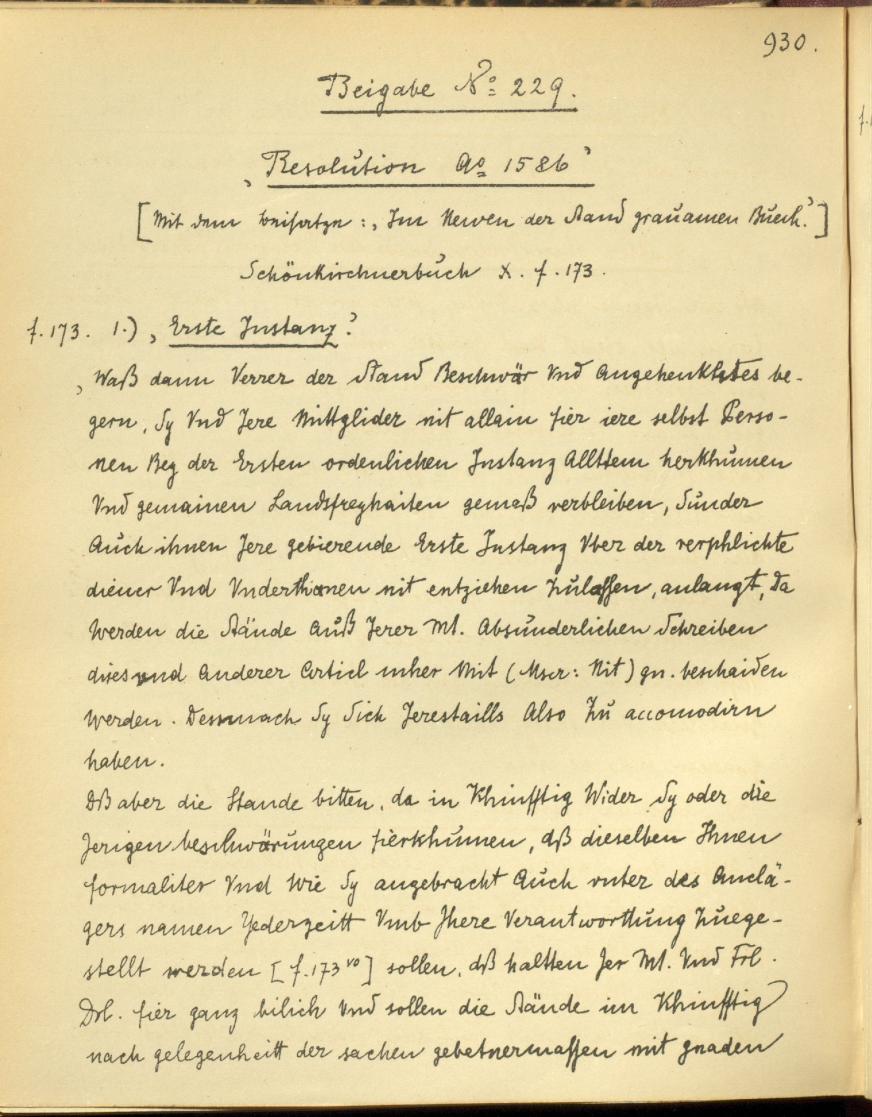 930.
Beigabe No 229.
„Resolution Ao 1586”
[Mit dem beisatze: „Im Newen der Stand grauamen Buech.”]
Schönkirchnerbuch X. f. 173.
f. 173. 1.) „Erste Instanz”
„Waß dann Verrer der Stand Beschwär Vnd Angehenkhtes be-
gern, Sy Vnd Jere Mittglider nit allain fier iere selbst Perso-
nen Bey der Ersten ordenlichen Instanz Allttem herkhumen
Vnd gemainen Landsfreyhaiten gemeß verbleiben, Sunder
Auch ihnen Jere gebierende Erste Instanz Vber der verphlichte
diener Vnd Vnderthonen nit entziehen Zulassen, anlangt, Da
Werden die Stände Auß Jerer Mt. Absunderlichen Schreiben
dises vnd Anderer Articl inher Mit (Mscr: Nit) gn. beschaiden
Werden. Demnach Sy Sich Jerestaills Also Zu accomodirn
haben.
Dß aber die Stande bitten, da in Khinfftig Wider Sy oder die
Jerigen beschwärungen fierkhumen, dß dieselben Ihnen
formaliter Vnd Wie Sy angebracht Auch vnter des Anclä-
gers namen Yederzeitt Vmb Jhere Verantworttung Zuege-
stellt werden [f. 173 vo] sollen, dß haltten Jer Mt. Vnd Frl.
Drl. fier ganz bilich Vnd sollen die Stände im Khinfftig
nach gelegenheitt der sachen gebetnermassen mit gnaden